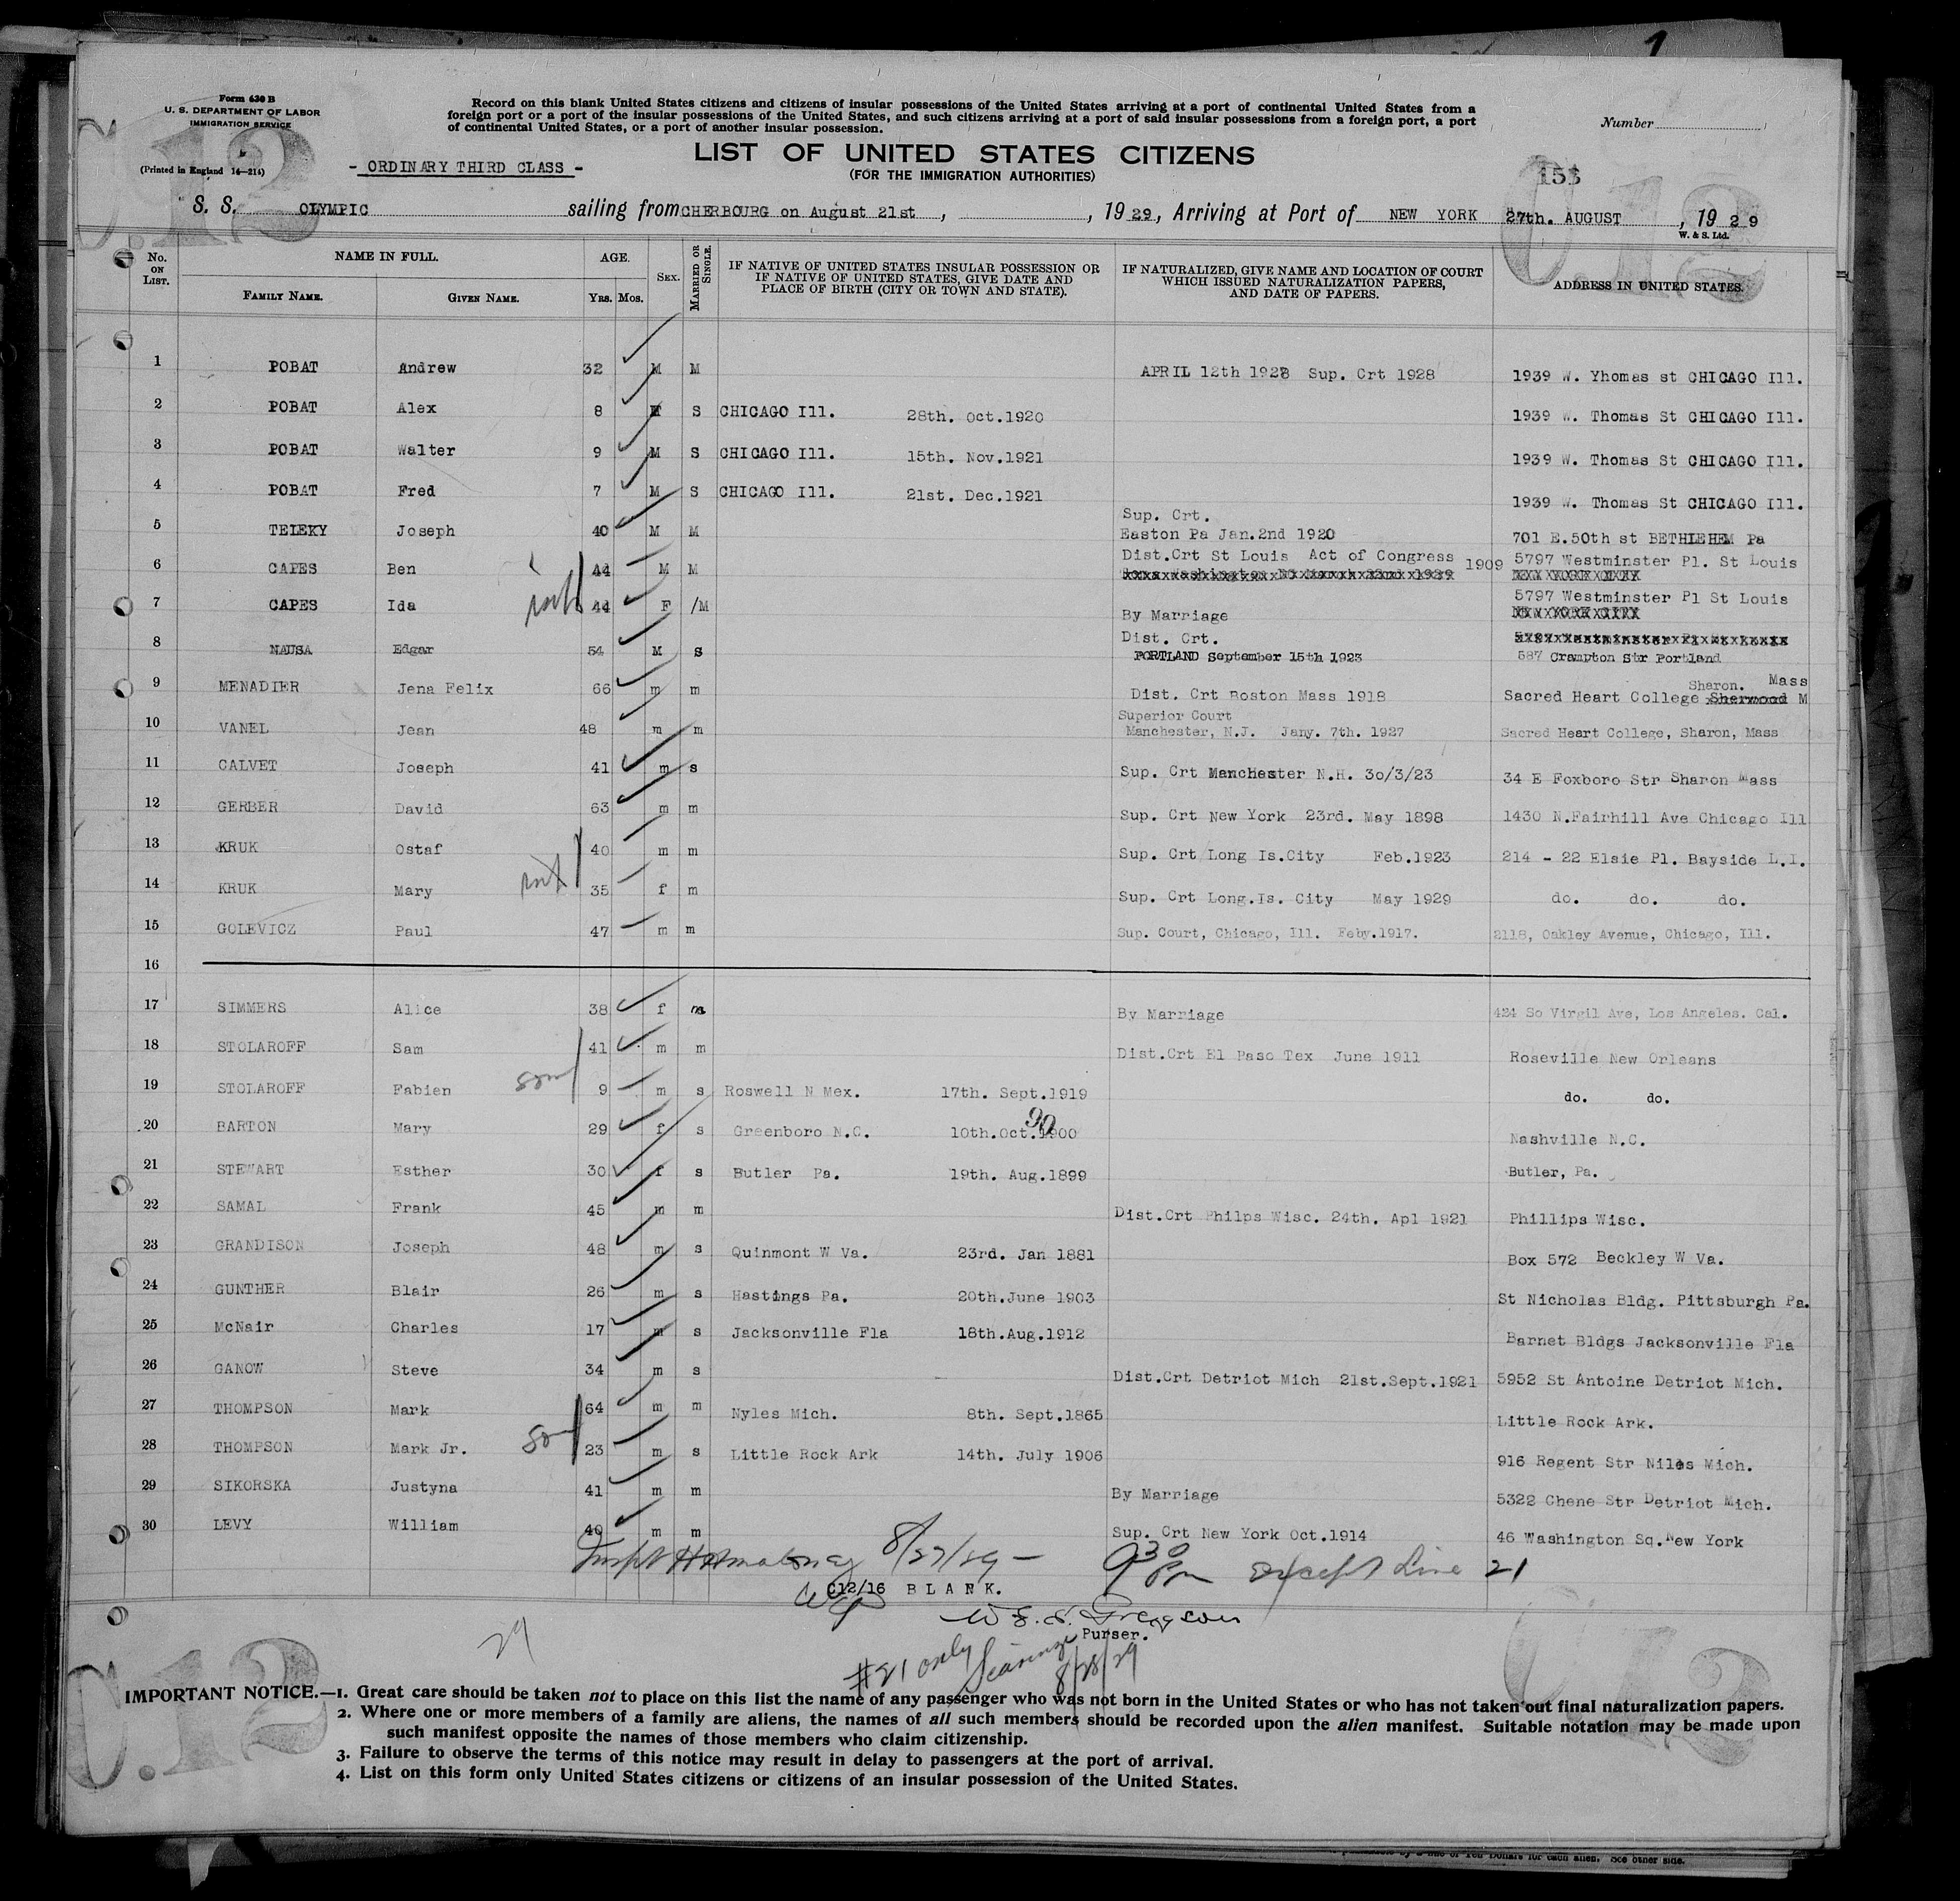 Form 630 B
U. S. DEPARTMENT OF LABOR
IMMIGRATION SERVICE
(Printed in England 14—214)
Record on this blank United States citizens and citizens of insular possessions of the United States arriving at a port of continental United States from a
foreign port or a port of the insular possessions of the United States, and such citizens arriving at a port of said insular possessions from a foreign port, a port
of continental United States, or a port of another insular possession.
Number
- ORDINARY THIRD CLASS -
LIST OF UNITED STATES CITIZENS
(FOR THE IMMIGRATION AUTHORITIES)
153
S. S. OLYMPIC sailing from CHERBOURG on August 21st , , 19 29, Arriving at Port of NEW YORK 27th. AUGUST , 19 2 9
W. & S. Ltd.
No. ON LIST. NAME IN FULL. FAMILY NAME. GIVEN NAME. AGE. YRS. MOS. SEX. MARRIED OR SINGLE. IF NATIVE OF UNITED STATES INSULAR POSSESSION OR IF NATIVE OF UNITED STATES, GIVE DATE AND PLACE OF BIRTH (CITY OR TOWN AND STATE). IF NATURALIZED, GIVE NAME AND LOCATION OF COURT WHICH ISSUED NATURALIZATION PAPERS, AND DATE OF PAPERS. ADDRESS IN UNITED STATES.
1 POBAT Andrew 32 M M APRIL 12th 1928 Sup. Crt 1928 1939 W. Yhomas st CHICAGO Ill.
2 POBAT Alex 8 M S CHICAGO Ill. 28th. Oct.1920 1939 W. Thomas St CHICAGO Ill.
3 POBAT Walter 9 M S CHICAGO Ill. 15th. Nov.1921 1939 W. Thomas St CHICAGO Ill.
4 POBAT Fred 7 M S CHICAGO Ill. 21st. Dec.1921 1939 W. Thomas St CHICAGO Ill.
5 TELEKY Joseph 40 M M Sup. Crt. Easton Pa Jan.2nd 1920 701 E.50th st BETHLEHEM Pa
6 CAPES Ben 44 M M Dist.Crt St Louis Act of Congress 1909 5797 Westminster Pl. St Louis
7 CAPES Ida 44 F /M By Marriage 5797 Westminster Pl St Louis NEW YORK CITY
8 NAUSA Edgar 54 M s Dist. Crt. PORTLAND September 15th 1923 587 Crampton Str Portland
9 MENADIER Jena Felix 66 m m Dist. Crt Boston Mass 1918 Sacred Heart College Sherwood M Sharon. Mass
10 VANEL Jean 48 m m Superior Court Manchester, N.J. Jany. 7th. 1927 Sacred Heart College, Sharon, Mass
11 CALVET Joseph 41 m s Sup. Crt Manchester N.H. 30/3/23 34 E Foxboro Str Sharon Mass
12 GERBER David 63 m m Sup. Crt New York 23rd. May 1898 1430 N.Fairhill Ave Chicago Ill
13 KRUK Ostaf 40 m m Sup. Crt Long Is.City Feb.1923 214 - 22 Elsie Pl. Bayside L.I.
14 KRUK Mary 35 f m Sup. Crt Long.Is. City May 1929 do. do. do.
15 GOLEVICZ Paul 47 m m Sup. Court, Chicago, Ill. Feby.1917. 2118, Oakley Avenue, Chicago, Ill.
16
17 SIMMERS Alice 38 f m By Marriage 424 So Virgil Ave, Los Angeles. Cal.
18 STOLAROFF Sam 41 m m Dist.Crt El Paso Tex June 1911 Roseville New Orleans
19 STOLAROFF Fabien son 9 m s Roswell N Mex. 17th. Sept.1919 do. do.
20 BARTON Mary 29 f s Greenboro N.C. 10th.Oct.1900 90 Nashville N.C.
21 STEWART Esther 30 f s Butler Pa. 19th. Aug.1899 Butler, Pa.
22 SAMAL Frank 45 m m Dist.Crt Philps Wisc. 24th. Apl 1921 Phillips Wisc.
23 GRANDISON Joseph 48 m s Quinmont W Va. 23rd. Jan 1881 Box 572 Beckley W Va.
24 GUNTHER Blair 26 m s Hastings Pa. 20th.June 1903 St Nicholas Bldg. Pittsburgh Pa.
25 McNair Charles 17 m s Jacksonville Fla 18th.Aug.1912 Barnet Bldgs Jacksonville Fla
26 GANOW Steve 34 m s Dist.Crt Detriot Mich 21st.Sept.1921 5952 St Antoine Detriot Mich.
27 THOMPSON Mark 64 m m Nyles Mich. 8th. Sept.1865 Little Rock Ark.
28 THOMPSON Mark Jr. son 23 m s Little Rock Ark 14th. July 1906 916 Regent Str Niles Mich.
29 SIKORSKA Justyna 41 m m By Marriage 5322 Chene Str Detriot Mich.
30 LEVY William 40 m m Sup. Crt New York Oct.1914 46 Washington Sq.New York
8/27/29 — 9 30 Pm except Line 21
C12/16 B L A N K.
Purser.
29
#21 only 8/28/29
IMPORTANT NOTICE.—1. Great care should be taken not to place on this list the name of any passenger who was not born in the United States or who has not taken out final naturalization papers.
2. Where one or more members of a family are aliens, the names of all such members should be recorded upon the alien manifest. Suitable notation may be made upon
such manifest opposite the names of those members who claim citizenship.
3. Failure to observe the terms of this notice may result in delay to passengers at the port of arrival.
4. List on this form only United States citizens or citizens of an insular possession of the United States.
C.12
C.12
C.12
C.12
See other side.